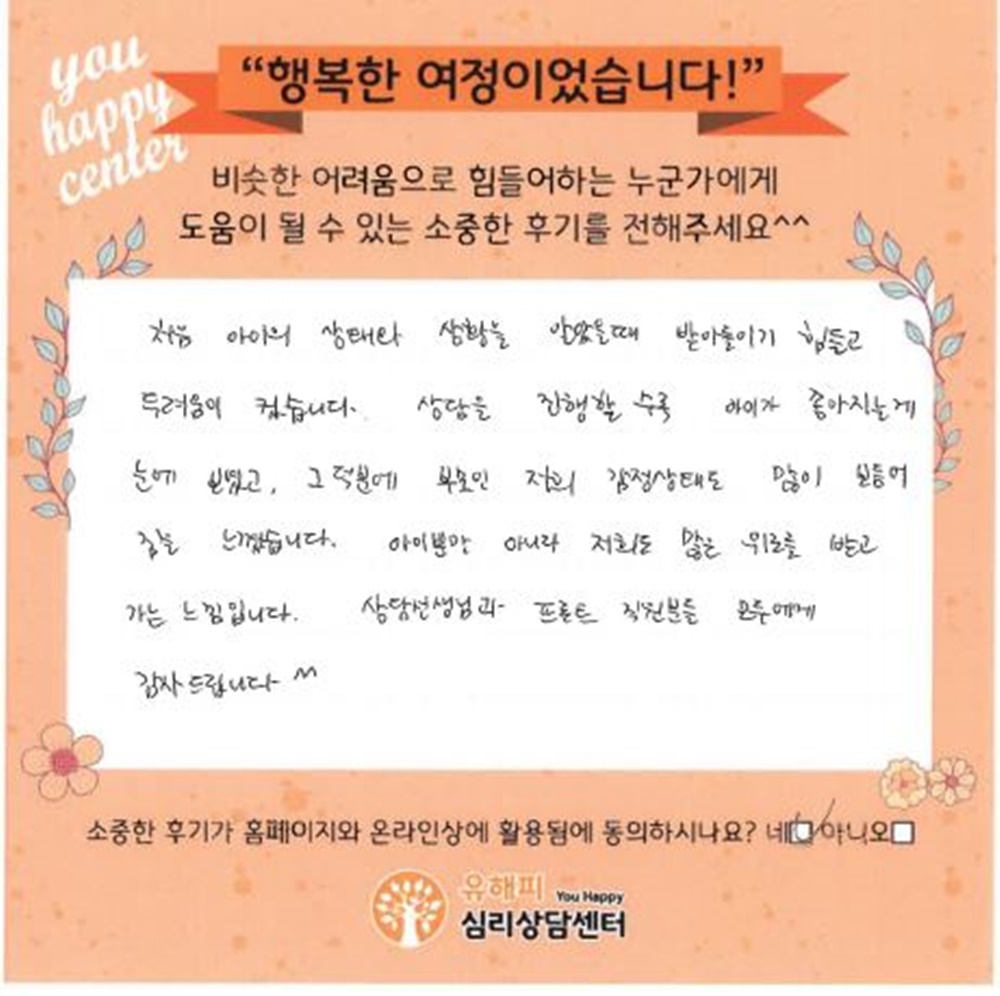 you
happy
center
“행복한 여정이었습니다!”
비슷한 어려움으로 힘들어하는 누군가에게
도움이 될 수 있는 소중한 후기를 전해주세요^^
처음 아이의 상태와 상황을 알았을때 받아들이기 힘들고
두려움이 컸습니다. 상담을 진행할 수록 아이가 좋아지는게
눈에 보였고, 그 덕분에 부모인 저희 감정상태도 많이 보듬어
짐을 느꼈습니다. 아이뿐만 아니라 저희도 많은 위로를 받고
가는 느낌입니다. 상담선생님과 프론트 직원분들 모두에게
감사드립니다 ^^
소중한 후기가 홈페이지와 온라인상에 활용됨에 동의하시나요? 네☑ 아니오□
유해피 You Happy
심리상담센터